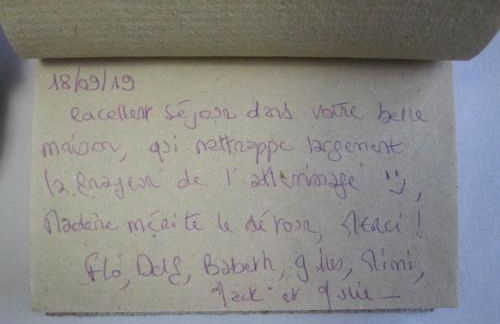 18/09/19
Excellent séjour dans votre belle
maison, qui rattrappe largement
la frayeur de l'atterrissage :),
Madère mérite le détour, Merci !
Flo, Delf, Babeth, Gilles, Mimi,
Jack et Julie